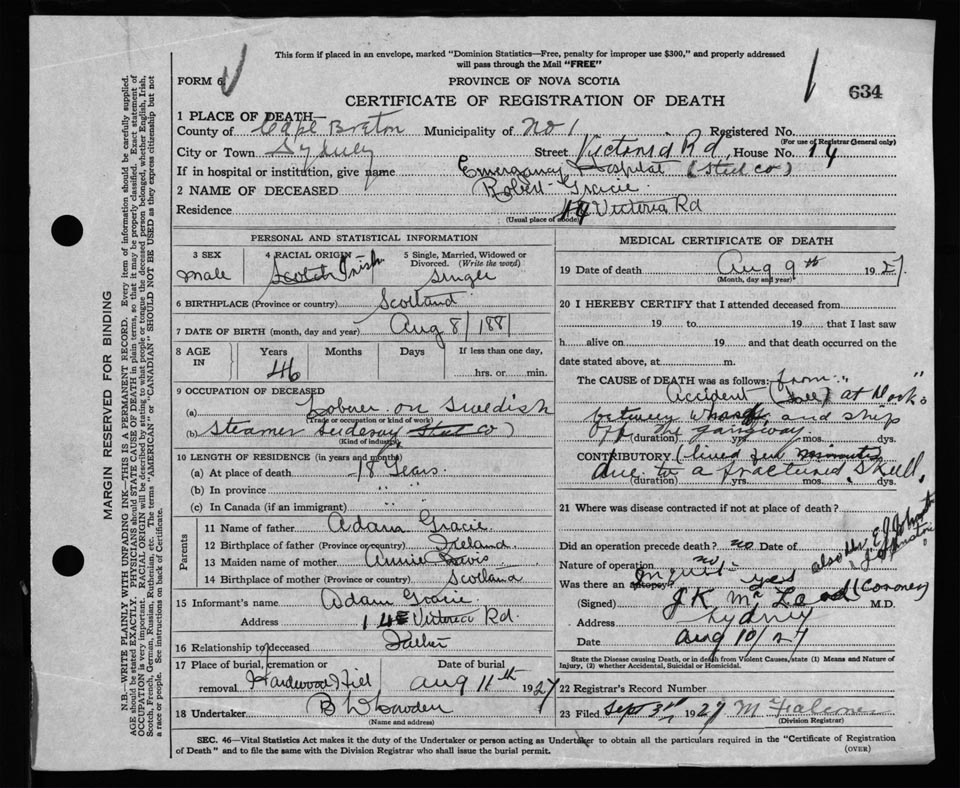 This form if placed in an envelope, marked "Dominion Statistics—Free, penalty for improper use $300," and properly addressed
will pass through the Mail "FREE"
FORM 6
PROVINCE OF NOVA SCOTIA
634
CERTIFICATE OF REGISTRATION OF DEATH
1 PLACE OF DEATH—
County of Cape Breton Municipality of No 1 Registered No.
(For use of Registrar General only)
City or Town Sydney Street Victoria Rd House No. 14
If in hospital or institution, give name Emergency Hospital (Steel Co)
2 NAME OF DECEASED Robert Gracie
Residence 14 Victoria Rd
(Usual place of abode)
PERSONAL AND STATISTICAL INFORMATION
3 SEX
male
4 RACIAL ORIGIN
Scotch Irish
5 Single, Married, Widowed or Divorced. (Write the word)
Single
6 BIRTHPLACE (Province or country) Scotland
7 DATE OF BIRTH (month, day and year) Aug 8/1881
8 AGE IN
Years Months Days If less than one day,
46 hrs. or min.
9 OCCUPATION OF DECEASED
(a) Laborer on Swedish
(Trade or occupation or kind of work)
(b) Steamer Steel Co)
(Kind of industry)
10 LENGTH OF RESIDENCE (in years and months)
(a) At place of death 18 Years
(b) In province " "
(c) In Canada (if an immigrant) " "
Parents
11 Name of father Adam Gracie
12 Birthplace of father (Province or country) Ireland
13 Maiden name of mother Annie Davis
14 Birthplace of mother (Province or country) Scotland
15 Informant's name Adam Gracie
Address 14 Victoria Rd.
16 Relationship to deceased Father
17 Place of burial, cremation or removal Hardwood Hill
Date of burial Aug 11th 1927
18 Undertaker
(Name and address)
MEDICAL CERTIFICATE OF DEATH
19 Date of death Aug 9th 1927.
(Month, day and year)
20 I HEREBY CERTIFY that I attended deceased from
19 to 19 that I last saw
h alive on 19 and that death occurred on the
date stated above, at m.
The CAUSE of DEATH was as follows: from
Accident (Fell) at Dock
between wharf and ship
off the gangway.
(duration) yrs. mos. dys.
CONTRIBUTORY (lived few minutes
due to a fractured Skull,
(duration) yrs. mos. dys.
21 Where was disease contracted if not at place of death?
Did an operation precede death? no Date of
Nature of operation no
Was there an autopsy? Inquest - yes
(Signed) J K (Coroner) M.D.
Address Sydney
Date Aug 10/27
State the Disease causing Death, or in death from Violent Causes, state (1) Means and Nature of
Injury, (2) whether Accidental, Suicidal or Homicidal.
22 Registrar's Record Number
23 Filed Sept 3rd 1927
(Division Registrar)
SEC. 46—Vital Statistics Act makes it the duty of the Undertaker or person acting as Undertaker to obtain all the particulars required in the "Certificate of Registration
of Death" and to file the same with the Division Registrar who shall issue the burial permit.
(OVER)
MARGIN RESERVED FOR BINDING
N.B.—WRITE PLAINLY WITH UNFADING INK—THIS IS A PERMANENT RECORD. Every item of information should be carefully supplied.
AGE should be stated EXACTLY. PHYSICIANS should STATE CAUSE OF DEATH in plain terms, so that it may be properly classified. Exact statement of
OCCUPATION is very important. RACIAL ORIGIN will be described by stating to what people or tongue the deceased person belonged, whether English, Irish,
Scotch, French, German, Russian, Ruthenian, etc. The terms "AMERICAN" or "CANADIAN" SHOULD NOT BE USED as they express citizenship but not
a race or people. See instructions on back of Certificate.